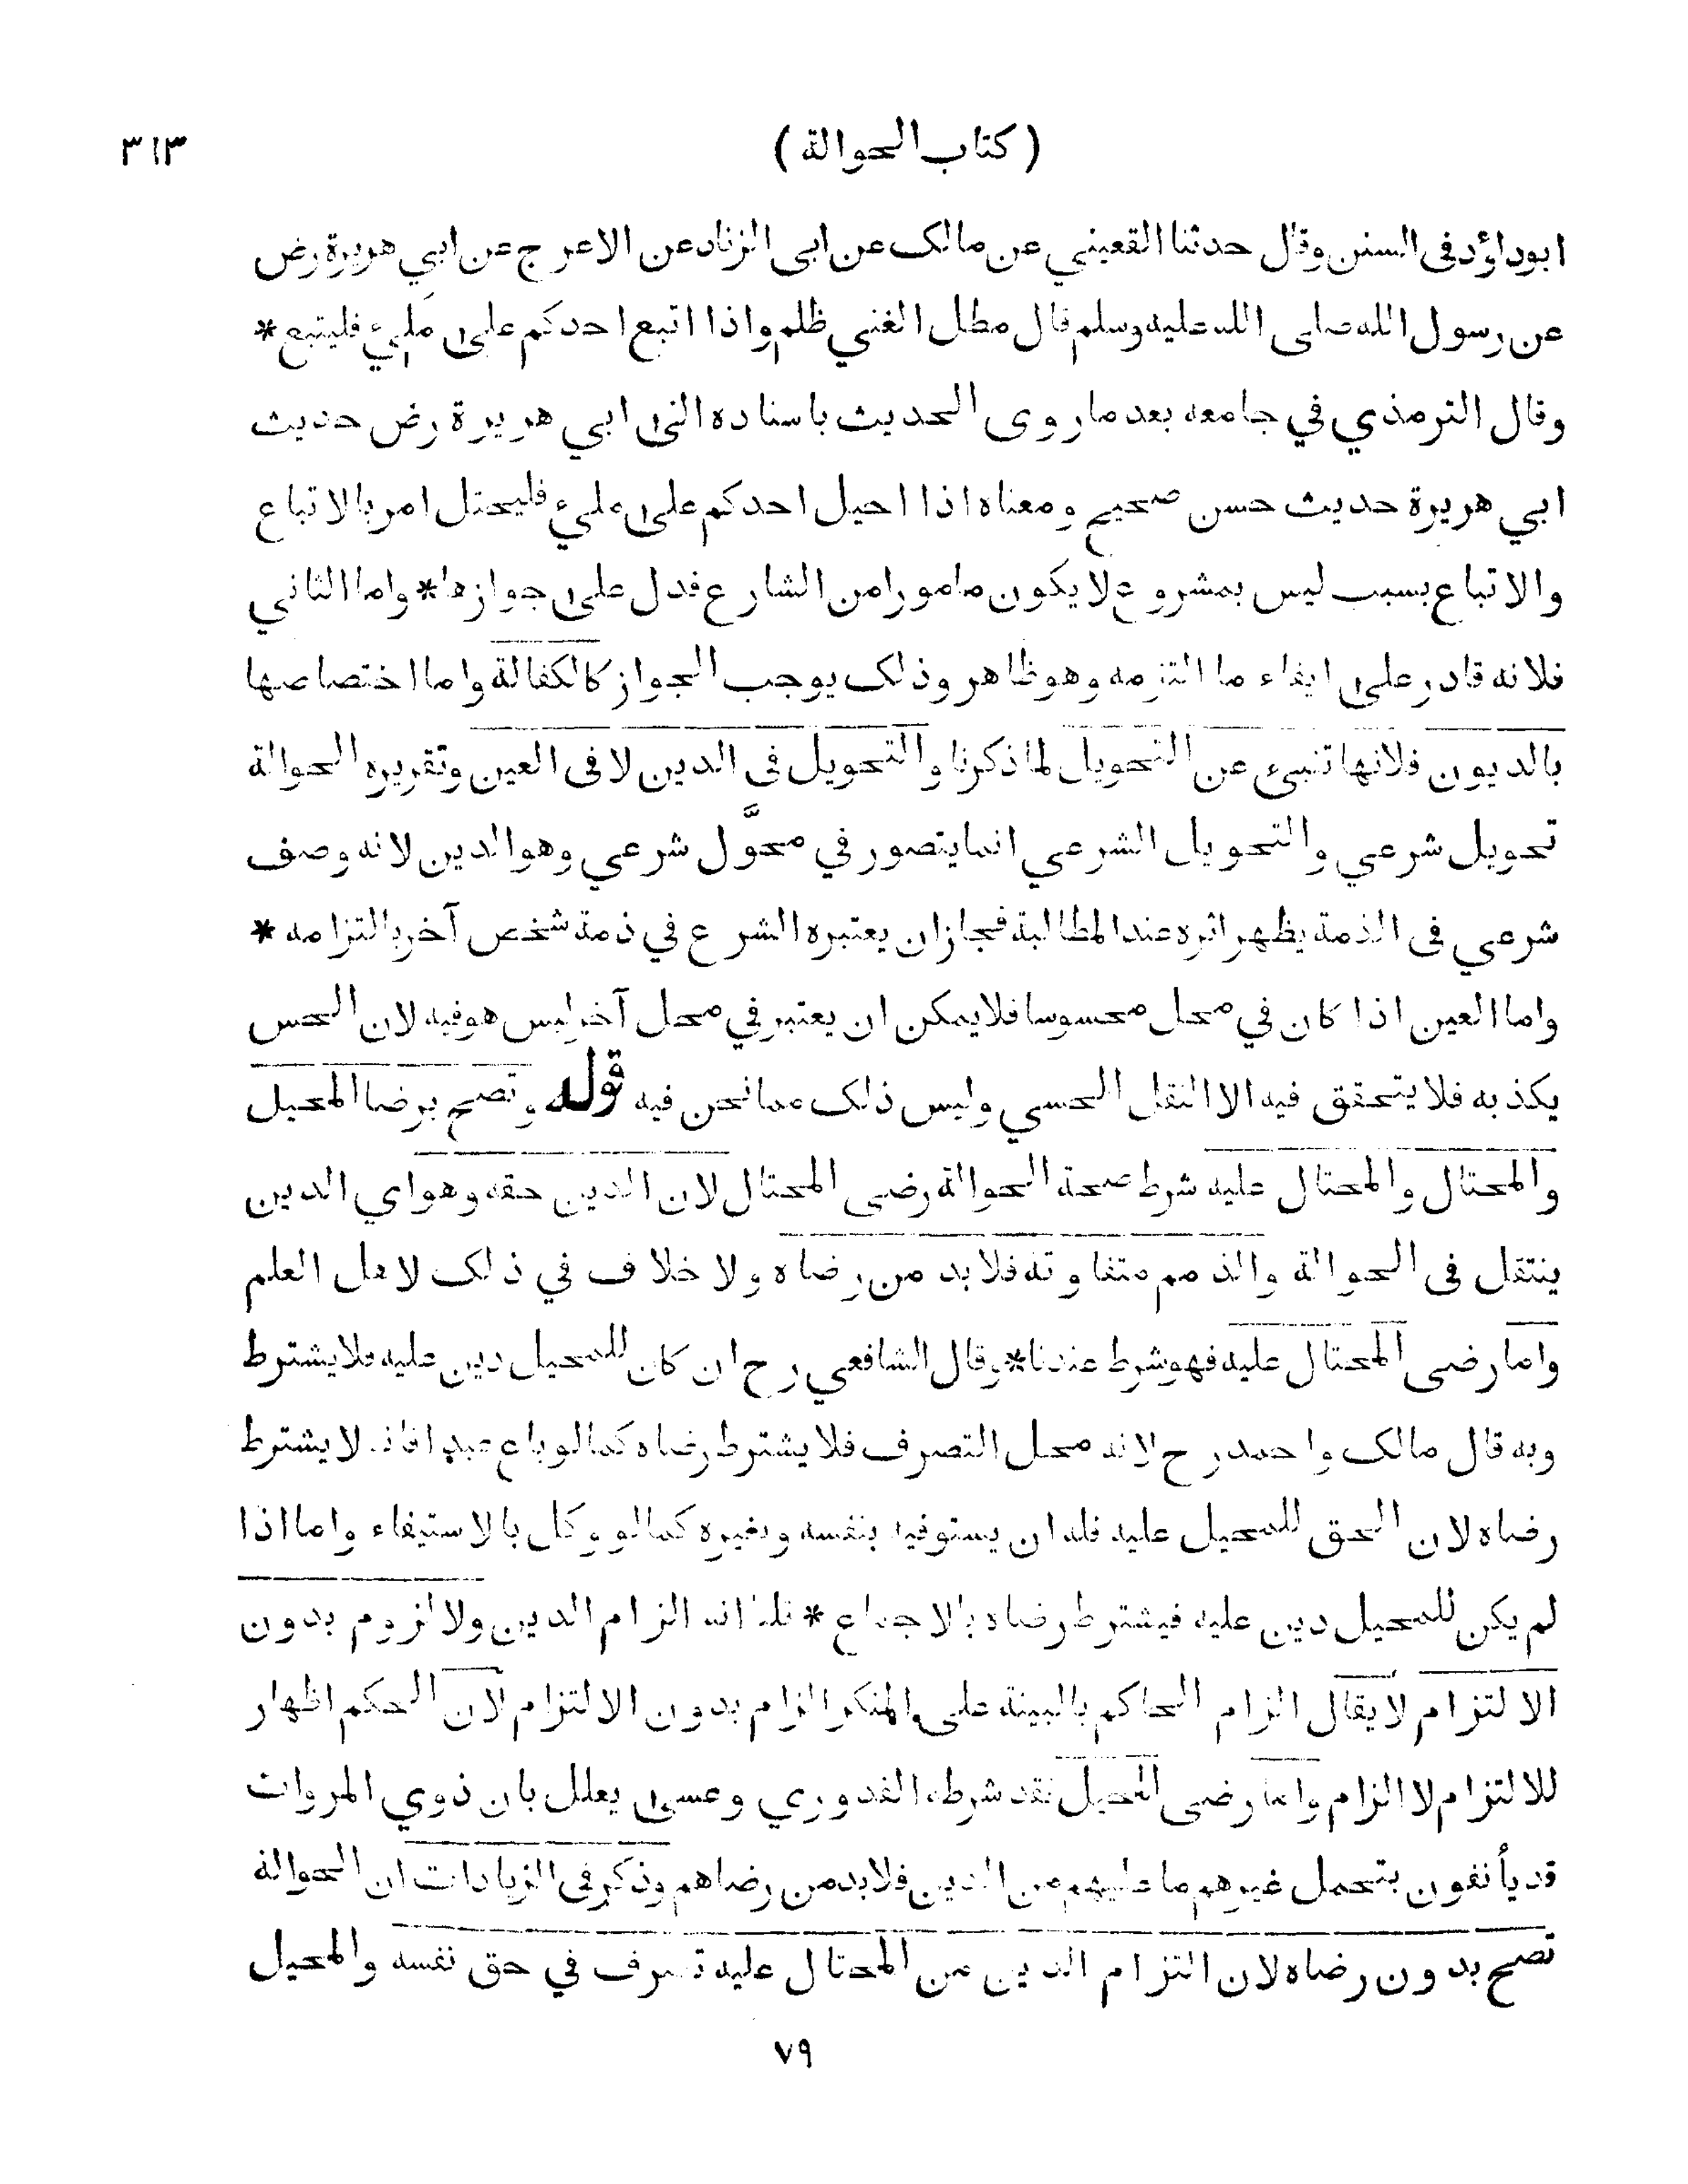 ( كتاب الحوالة ) ٣١٣
ابوداؤد فى السنن وقال حدثنا القعيني عن مالك عن ابى الزناد عن الاعرج عن ابي هريرة رض
عن رسول الله صلى الله عليه وسلم قال مطل الغني ظلم واذا اتبع احدكم على مَليء فليتبع *
وقال الترمذي في جامعه بعد ما روى الحديث باسناده الى ابي هريرة رض حديث
ابي هريرة حديث حسن صحيح ومعناه اذا احيل احدكم على مليء فليحتل امر بالاتباع
والاتباع بسبب ليس بمشروع لا يكون مامورا من الشارع فدل على جوازها * واما الثاني
فلانه قادر على ايفاء ما التزمه وهو ظاهر وذلك يوجب الجواز كالكفالة واما اختصاصها
بالديون فلانها تنبىء عن التحويل لما ذكرنا والتحويل فى الدين لا فى العين وتقريره الحوالة
تحويل شرعي والتحويل الشرعي انما يتصور في محوَّل شرعي وهو الدين لانه وصف
شرعي فى الذمة يظهر اثره عند المطالبة فجاز ان يعتبره الشرع في ذمة شخص آخر بالتزامه *
واما العين اذا كان في محل محسوسا فلا يمكن ان يعتبر في محل آخر ليس هو فيه لان الحس
يكذبه فلا يتحقق فيه الا النقل الحسي وليس ذلك مما نحن فيه قوله وتصح برضا المحيل
والمحتال والمحتال عليه شرط صحة الحوالة رضى المحتال لان الدين حقه وهو اي الدين
ينتقل فى الحوالة والذمم متفاوتة فلا بد من رضاه ولا خلاف في ذلك لاهل العلم
واما رضى المحتال عليه فهو شرط عندنا * وقال الشافعي رح ان كان للمحيل دين عليه فلا يشترط
وبه قال مالك واحمد رح لانه محل التصرف فلا يشترط رضاه كما لو باع عبدا فانه لا يشترط
رضاه لان الحق للمحيل عليه فله ان يستوفيه بنفسه وبغيره كما لو وكل بالاستيفاء واما اذا
لم يكن للمحيل دين عليه فيشترط رضاه بالاجماع * قلنا انه الزام الدين ولا لزوم بدون
الالتزام لا يقال الزام الحاكم بالبينة على المنكر الزام بدون الالتزام لان الحكم اظهار
للالتزام لا الزام واما رضى المحيل فقد شرطه القدوري وعسى يعلل بان ذوي المروات
قد يأنفون بتحمل غيرهم ما عليهم من الدين فلا بد من رضاهم وذكر فى الزيادات ان الحوالة
تصح بدون رضاه لان التزام الدين من المحتال عليه تصرف في حق نفسه والمحيل
٧٩